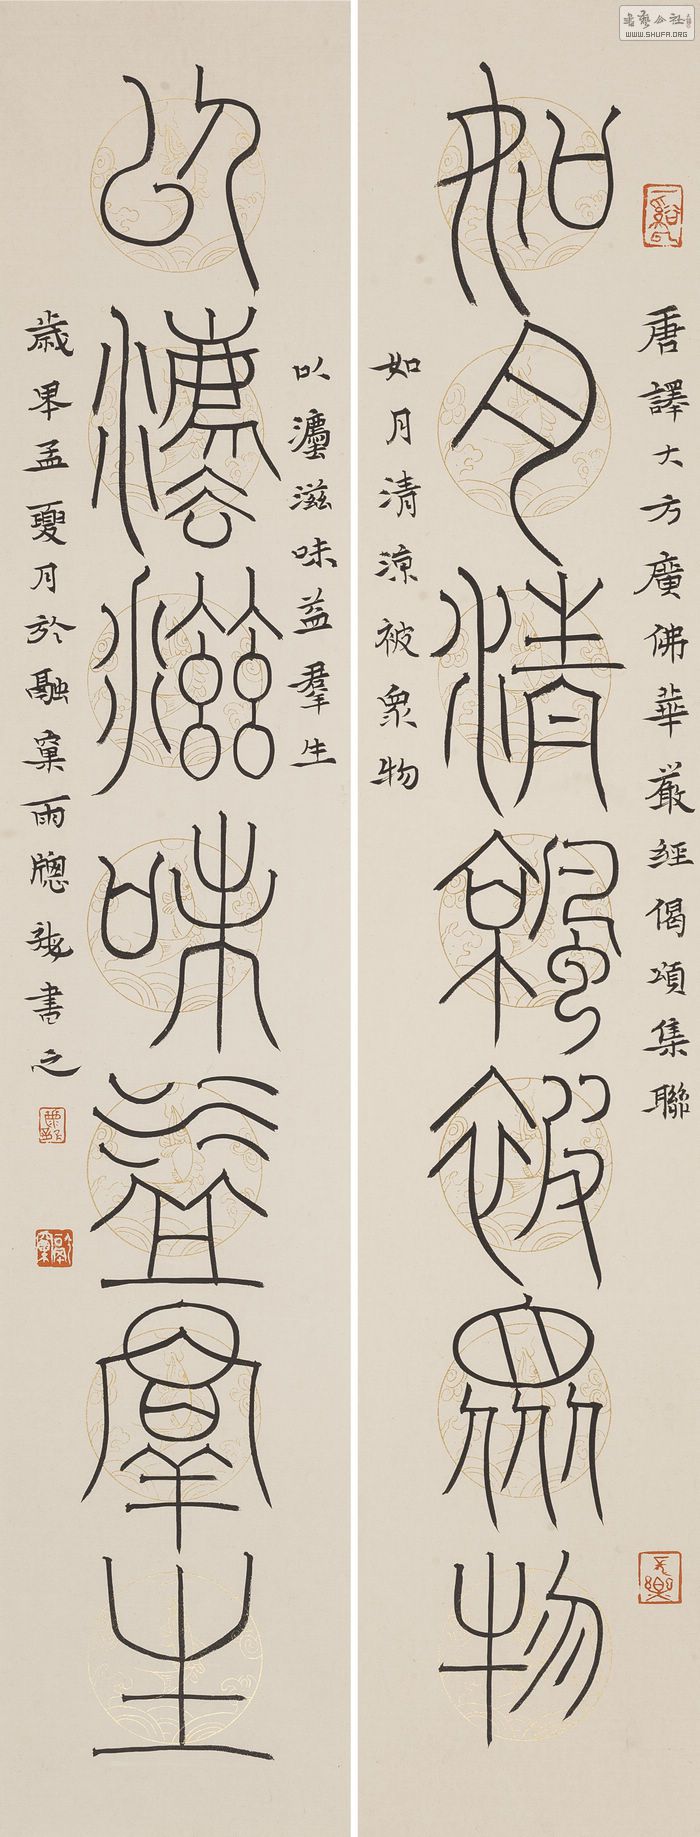 唐譯大方廣佛華嚴經偈頌集聯
如月清涼被眾物
如月清涼被眾物
以灋滋味益羣生
以灋滋味益羣生
歲孟夏月於融窠雨牕敬書之
書藝公社
WWW.SHUFA.ORG